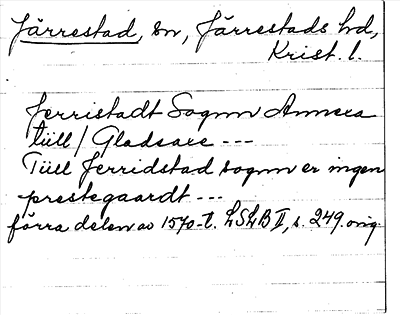 Järrestad, sn, Järrestads hd,
Krist. l.
Jerristadt Sognn Annexa
tiill / Gladsaxe ---
Tiill Jerridstad sognn er ingen
prestegaardt ---
förra delen av 1570-t. LSLB II, s. 249. orig.